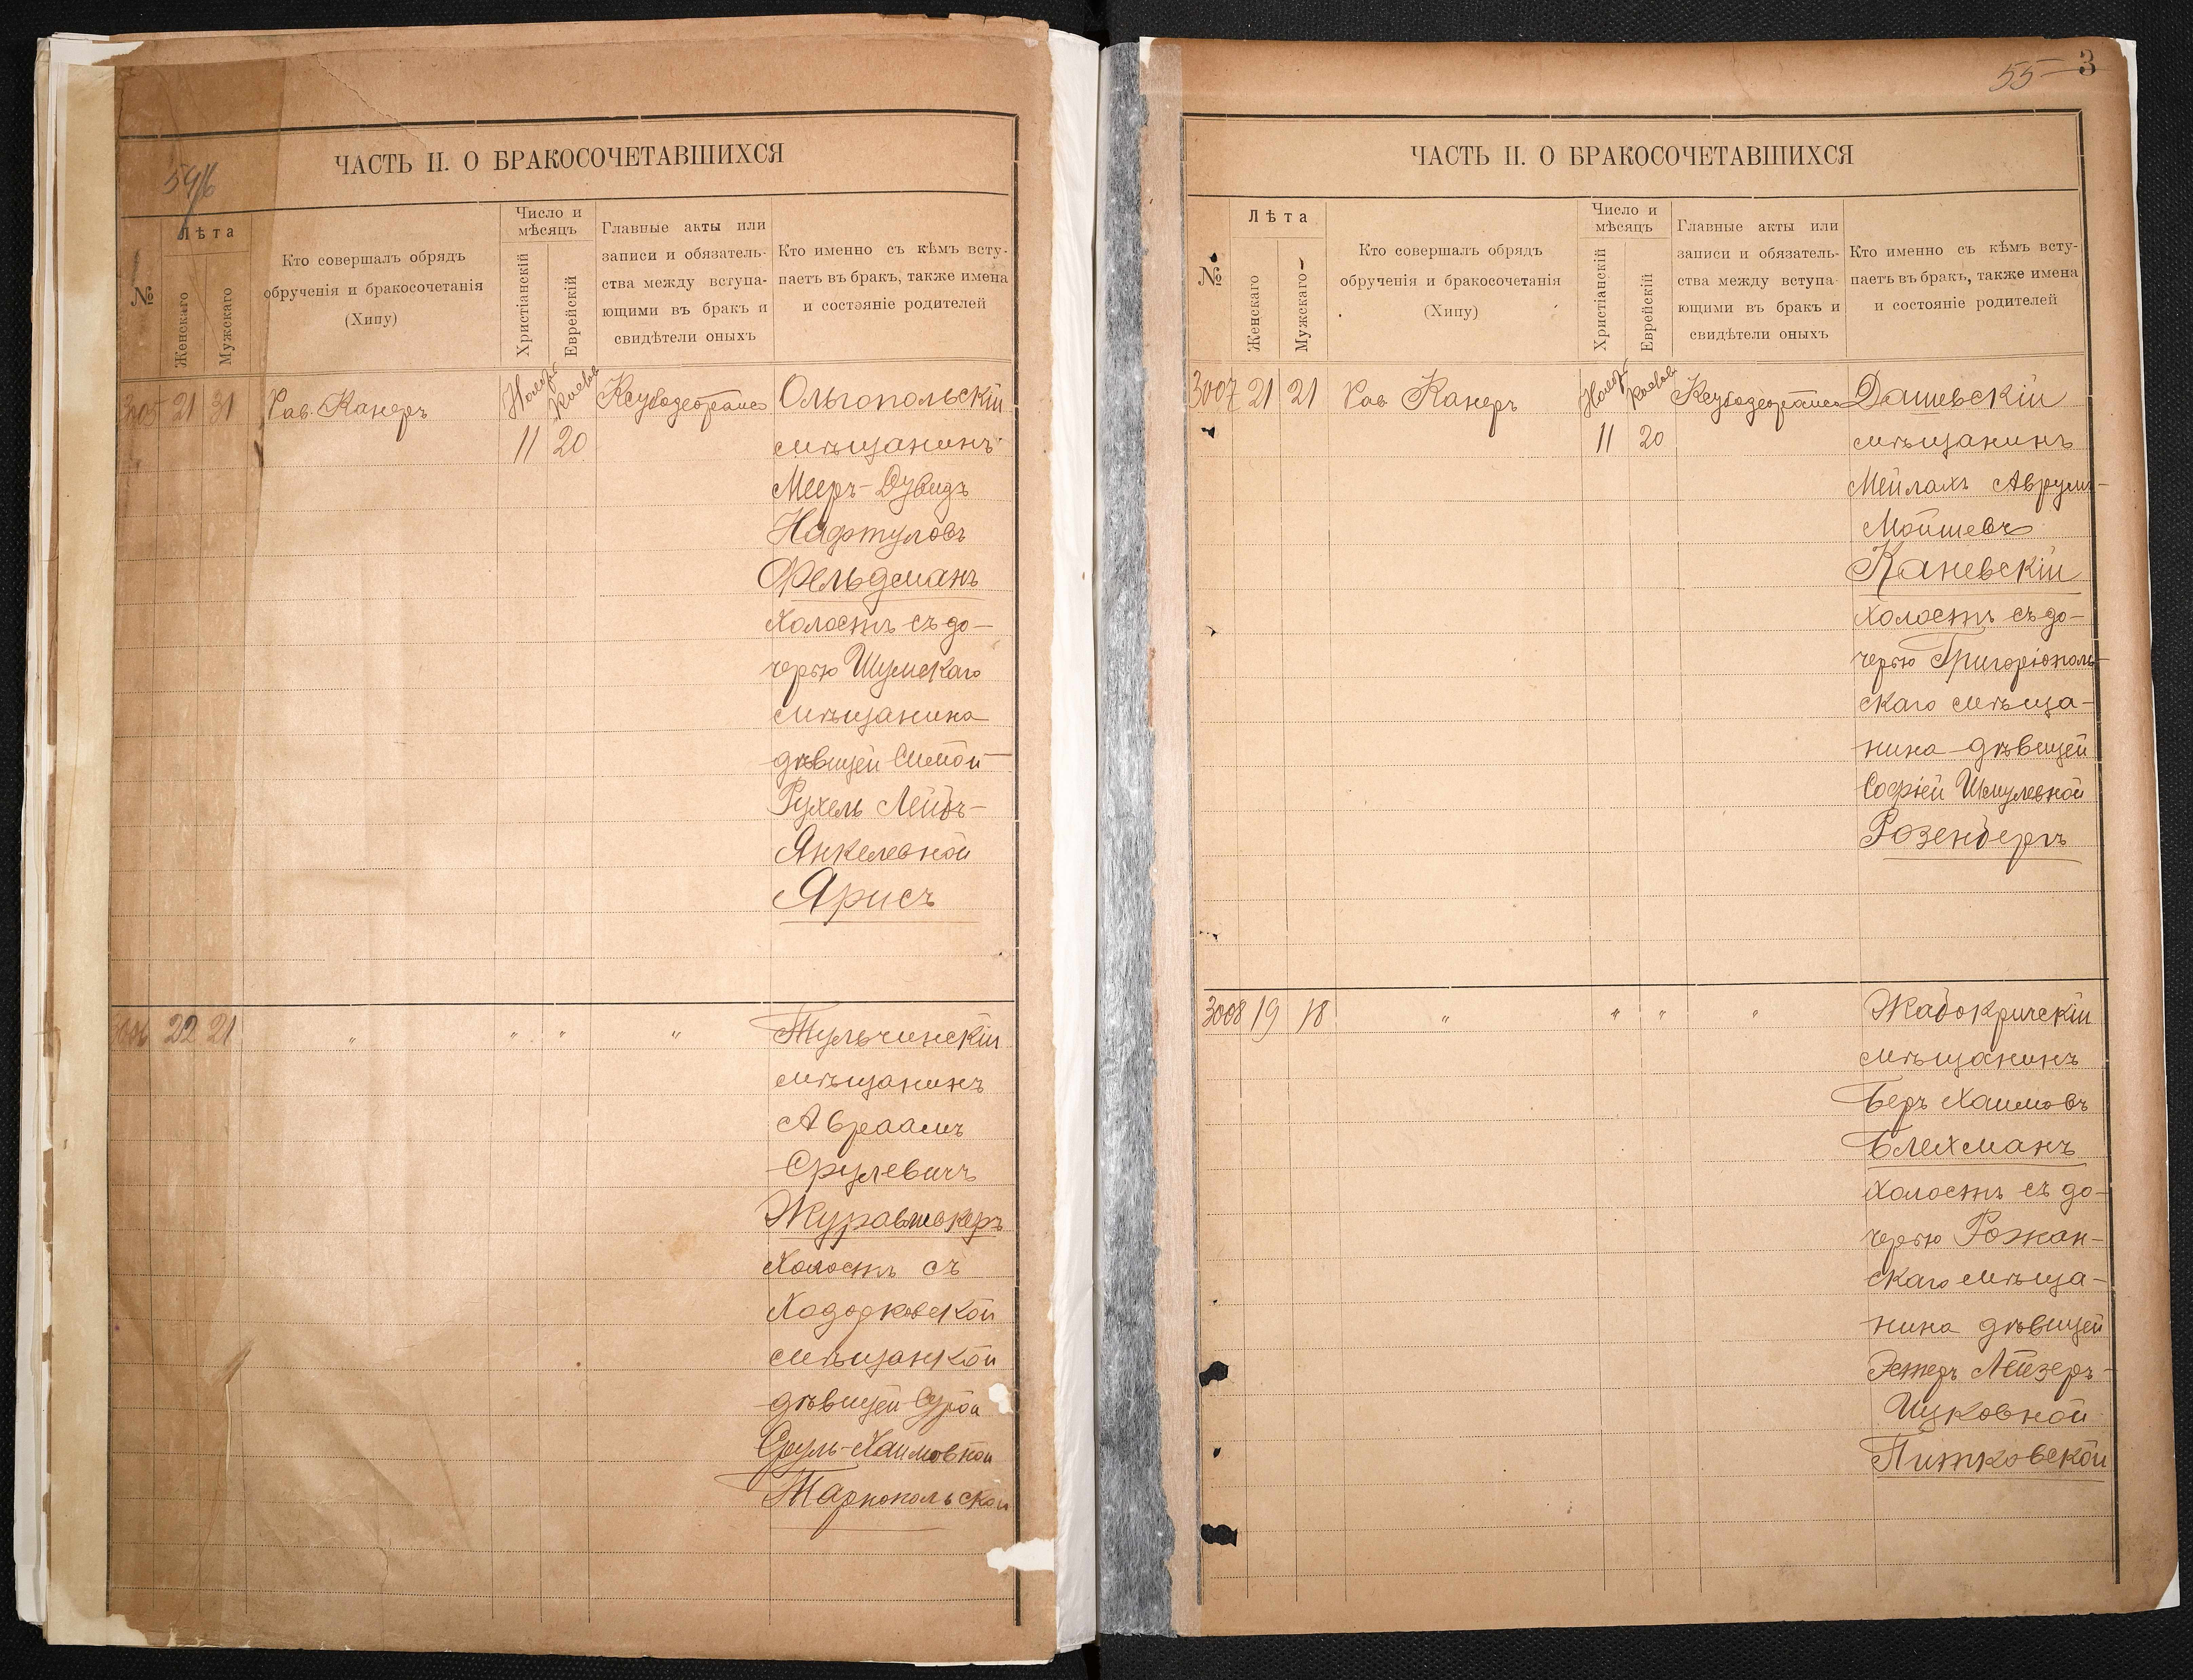 ЧАСТЬ II. О БРАКОСОЧЕТАВШИХСЯ
№
Лѣта
Женскаго
Мужскаго
Кто совершалъ обрядъ
обрученія и бракосочетанія
(Хипу)
Число и
мѣсяцъ
Христіанскій
Еврейскій
Главные акты или
записи и обязатель-
ства между вступа-
ющими въ бракъ и
свидѣтели оныхъ
Кто именно съ кѣмъ всту-
паетъ въ бракъ, также имена
и состояніе родителей
3005 21 31 Рав. Канеръ
11 20
Ольгопольскій
мѣщанинъ
Мееръ-Дувидъ
Нафтуловъ
Фельдманъ
холостъ съ до-
черью Шумскаго
мѣщанина
дѣвицей Симой
Рухель Лейбъ-
Янкелевной
Ярисъ
3006 22 21 " " " "
Тульчинскій
мѣщанинъ
Авраамъ
Срулевичъ
холостъ съ
Ходорковской
мѣщанкой
дѣвицей Сурой
Сруль-Хаимовной
Тарнопольской
55 3
ЧАСТЬ II. О БРАКОСОЧЕТАВШИХСЯ
№
Лѣта
Женскаго
Мужскаго
Кто совершалъ обрядъ
обрученія и бракосочетанія
(Хипу)
Число и
мѣсяцъ
Христіанскій
Еврейскій
Главные акты или
записи и обязатель-
ства между вступа-
ющими въ бракъ и
свидѣтели оныхъ
Кто именно съ кѣмъ всту-
паетъ въ бракъ, также имена
и состояніе родителей
3007 21 21 Рав Канеръ
11 20
Дашевскій
мѣщанинъ
Мейлахъ Аврумъ-
Мойшевъ
Каневскій
холостъ съ до-
черью Григоріополь-
скаго мѣща-
нина дѣвицей
Софіей Шмулевной
Розенбергъ
3008 19 18 " " " "
Жабокричскій
мѣщанинъ
Беръ Хаимовъ
Блехманъ
холостъ съ до-
черью Рожан-
скаго мѣща-
нина дѣвицей
Эстеръ Лейзеръ-
Ицковной
Питковской